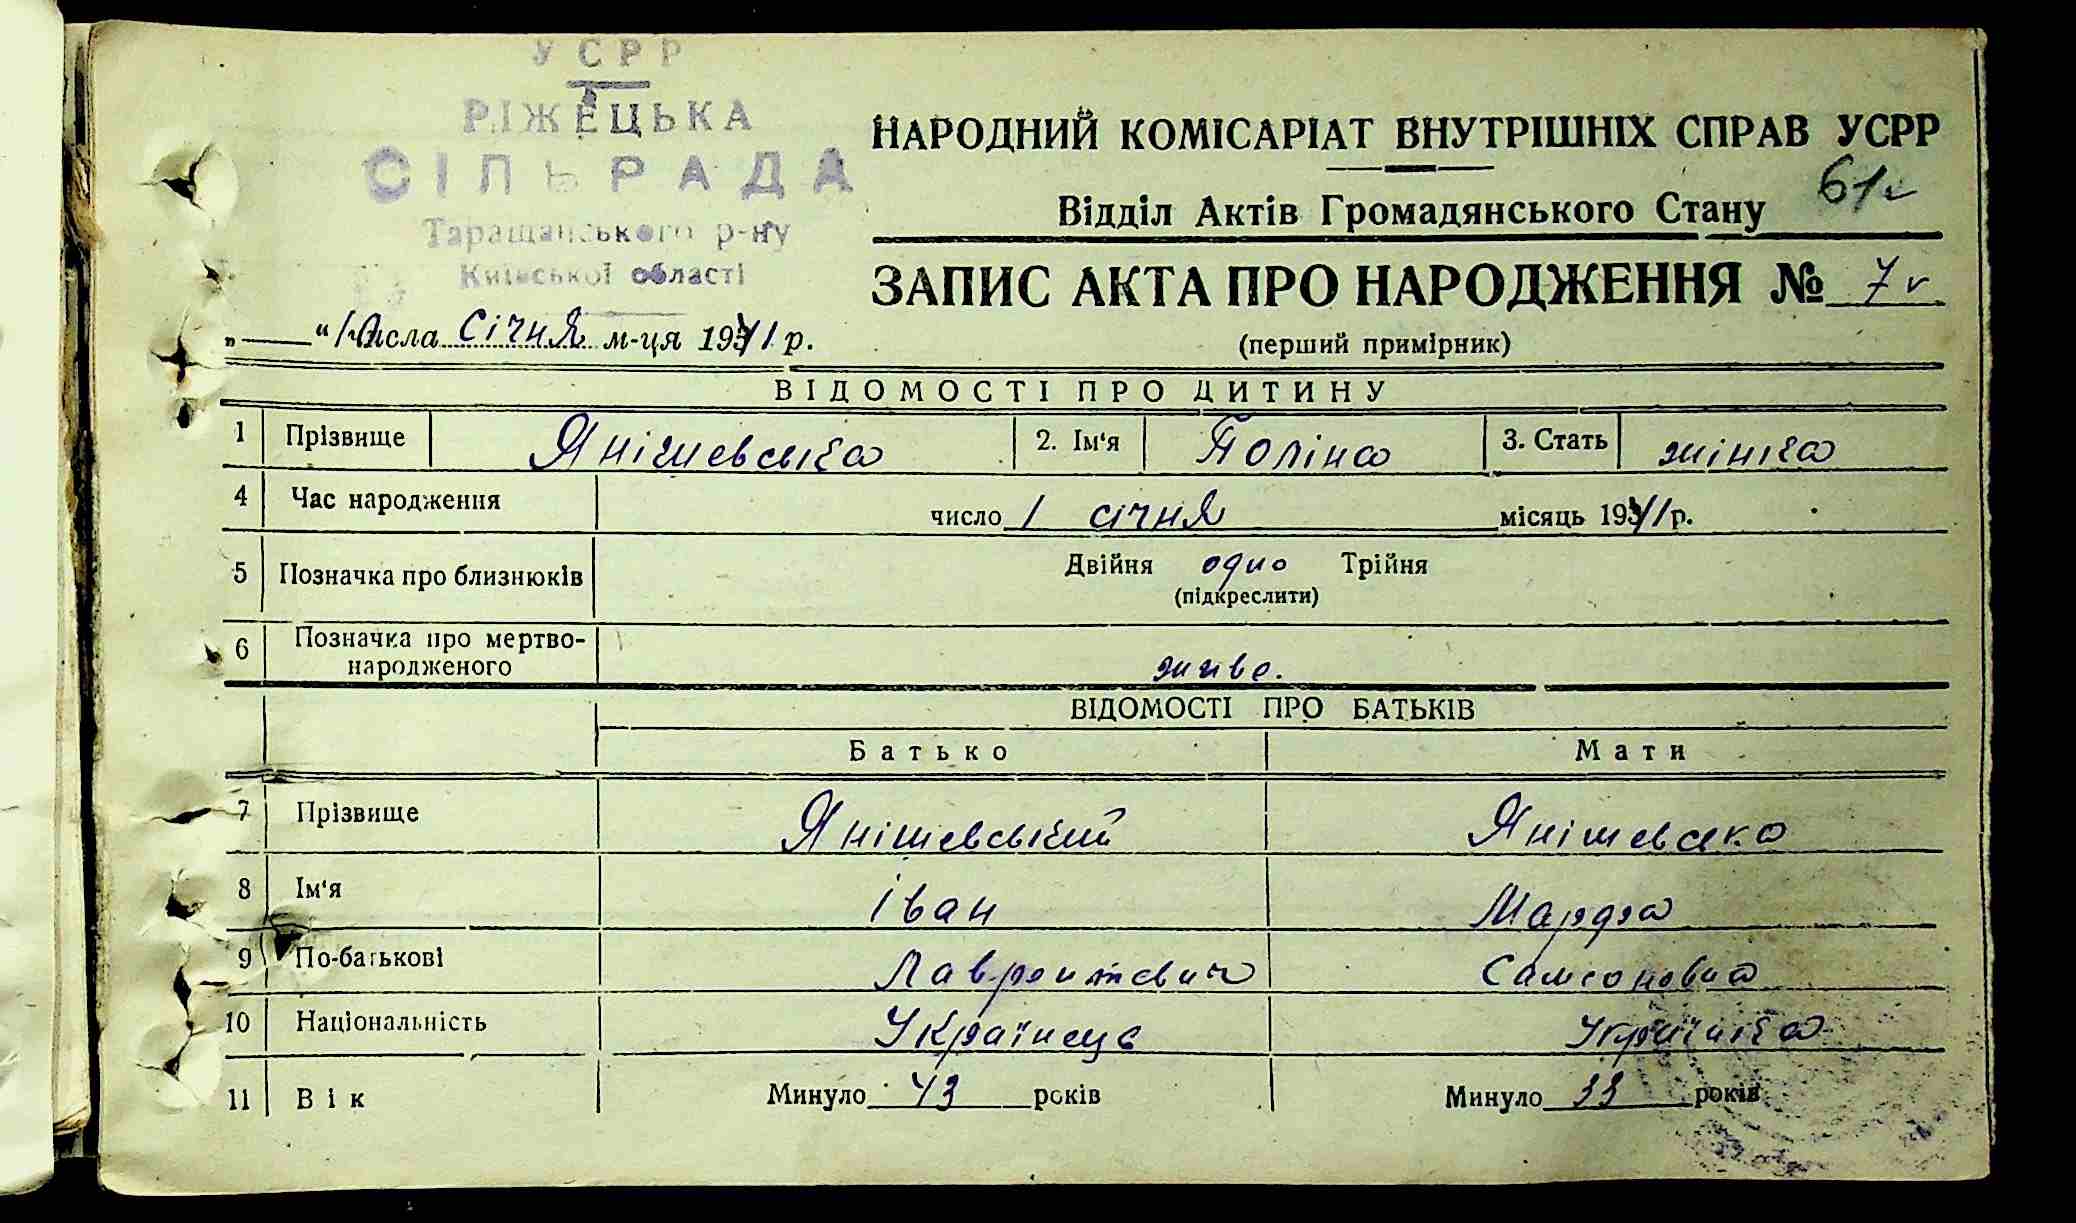 УСРР
РІЖЕЦЬКА
СІЛЬРАДА
Таращанського р-ну
Київської області
НАРОДНИЙ КОМІСАРІАТ ВНУТРІШНІХ СПРАВ УСРР
Відділ Актів Громадянського Стану 61
ЗАПИС АКТА ПРО НАРОДЖЕННЯ № 7
„ “ числа січня м-ця 1941 р.
(перший примірник)
ВІДОМОСТІ ПРО ДИТИНУ
1 Прізвище Янішевська 2. Ім'я Поліна 3. Стать жінка
4 Час народження число 1 січня місяць 1941 р.
5 Позначка про близнюків Двійня одно Трійня
(підкреслити)
6 Позначка про мертво-
народженого живе.
ВІДОМОСТІ ПРО БАТЬКІВ
Батько Мати
7 Прізвище Янішевський Янішевська
8 Ім'я Іван Марфа
9 По-батькові Самсоновна
10 Національність Українець Українка
11 Вік Минуло 43 років Минуло 33 років